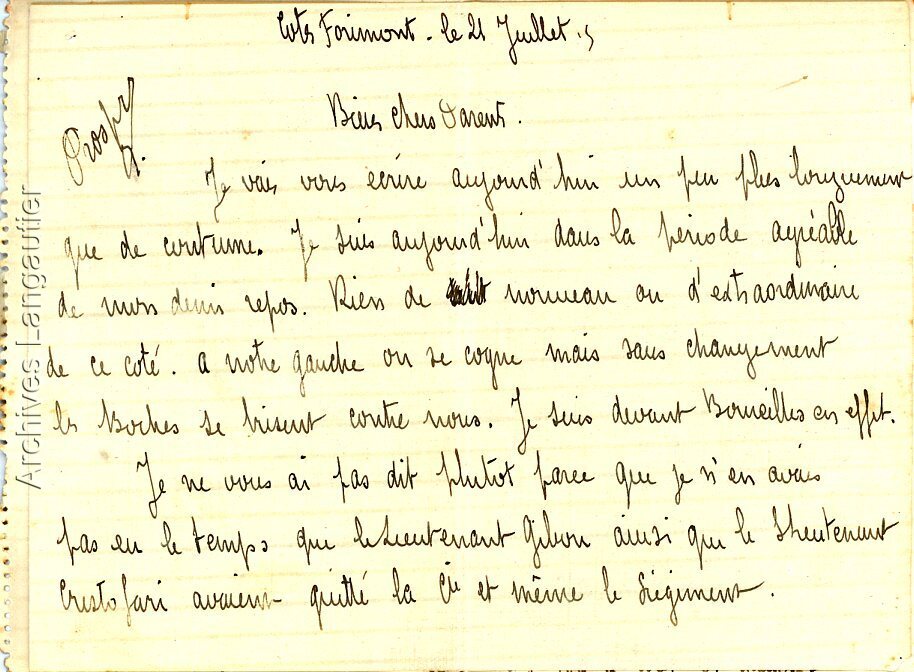 Cote Forimont - le 21 Juillet 15
Prosper
Bien chers Parents.
Je vais vous écrire aujourd'hui un peu plus longuement
que de coutume. Je suis aujourd'hui dans la période agréable
de mon demi repos. Rien de nouveau ou d'extraordinaire
de ce coté. a notre gauche on se cogne mais sans changement
les Boches se brisent contre nous. Je suis devant Boureuilles en effet.
Je ne vous ai pas dit plutot parce que je n'en avais
pas eu le temps que le Lieutenant Gibon ainsi que le S/lieutenant
Cristofari avaient quitté la Cie et même le Régiment.
Archives Langautier